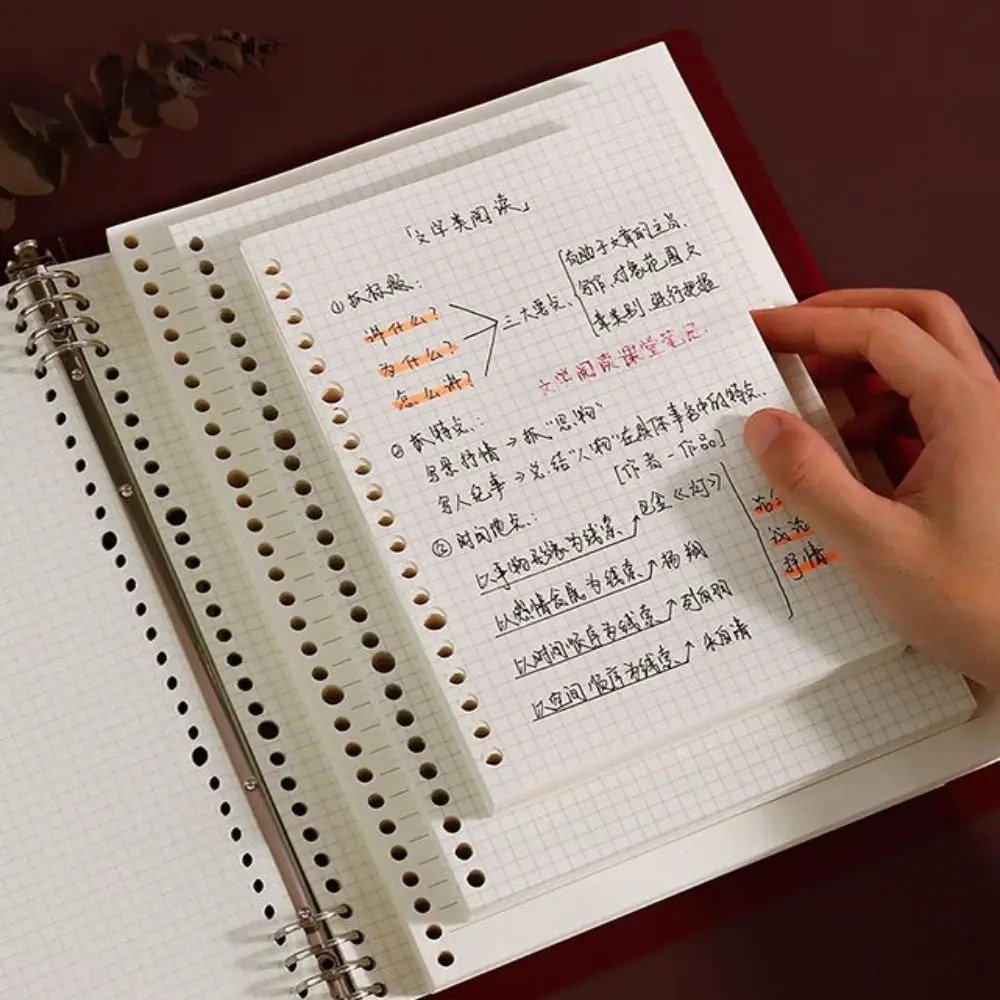 「文学类阅读」
①抓标题:
讲什么?
为什么?
怎么讲?
三大要点
有助于文章的主旨.
写作,对象范围文
章类别,进行把握
文学阅读课堂笔记.
②抓特点:
写景抒情→抓"景物"
写人纪事→总结"人物"在具体事各中的特点.
[作者-作品]
③时间地点:
以事物形象为线索↗包含《灯》
以感情发展为线索↗杨朔
以时间顺序为线索↗刘白羽
以空间顺序为线索↗朱自清
议论
抒情